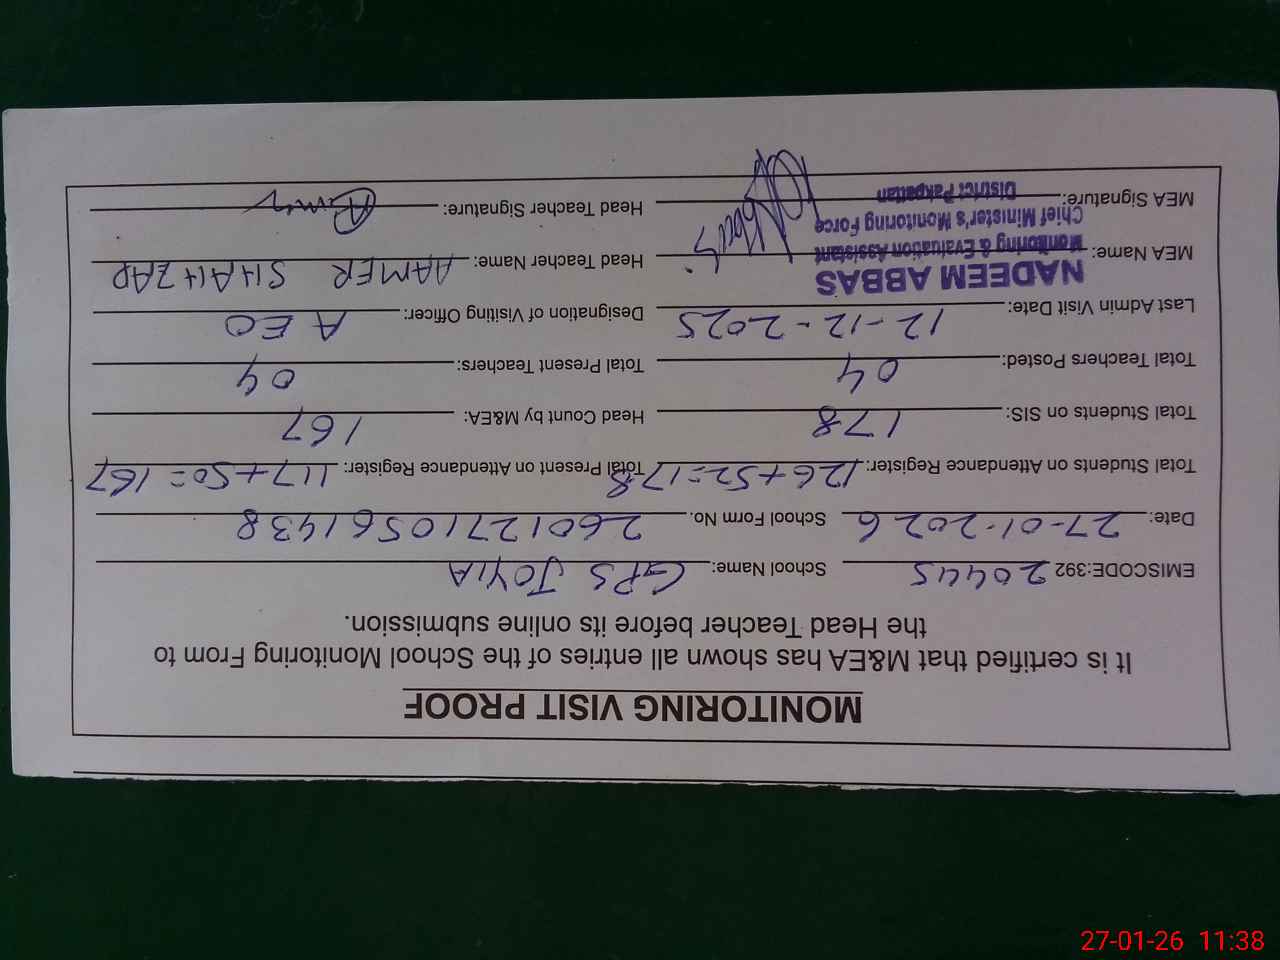 MONITORING VISIT PROOF
It is certified that M&EA has shown all entries of the School Monitoring From to
the Head Teacher before its online submission.
EMISCODE:392 20445 School Name: GPS JOYIA
Date: 27-01-2026 School Form No. 2601271056 1438
Total Students on Attendance Register: 126+52=178 Total Present on Attendance Register: 117+50=167
Total Students on SIS: 178 Head Count by M&EA: 167
Total Teachers Posted: 04 Total Present Teachers: 04
Last Admin Visit Date: 12-12-2025 Designation of Visiting Officer: AEO
NADEEM ABBAS
MEA Name: Monitoring & Evaluation Assistant Head Teacher Name: AAMER SHAHZAD
Chief Minister's Monitoring Force
MEA Signature: District Pakpattan Head Teacher Signature:
27-01-26 11:38